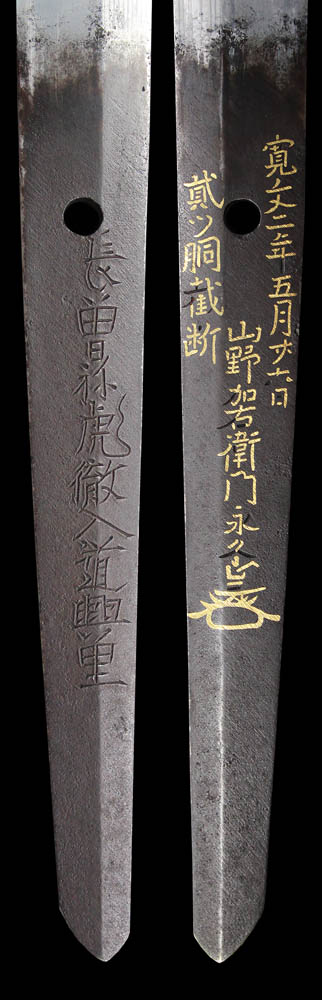 長曽祢虎徹入道興里
寛文二年五月廿六日
山野加右衛門永久
貳ツ胴截断